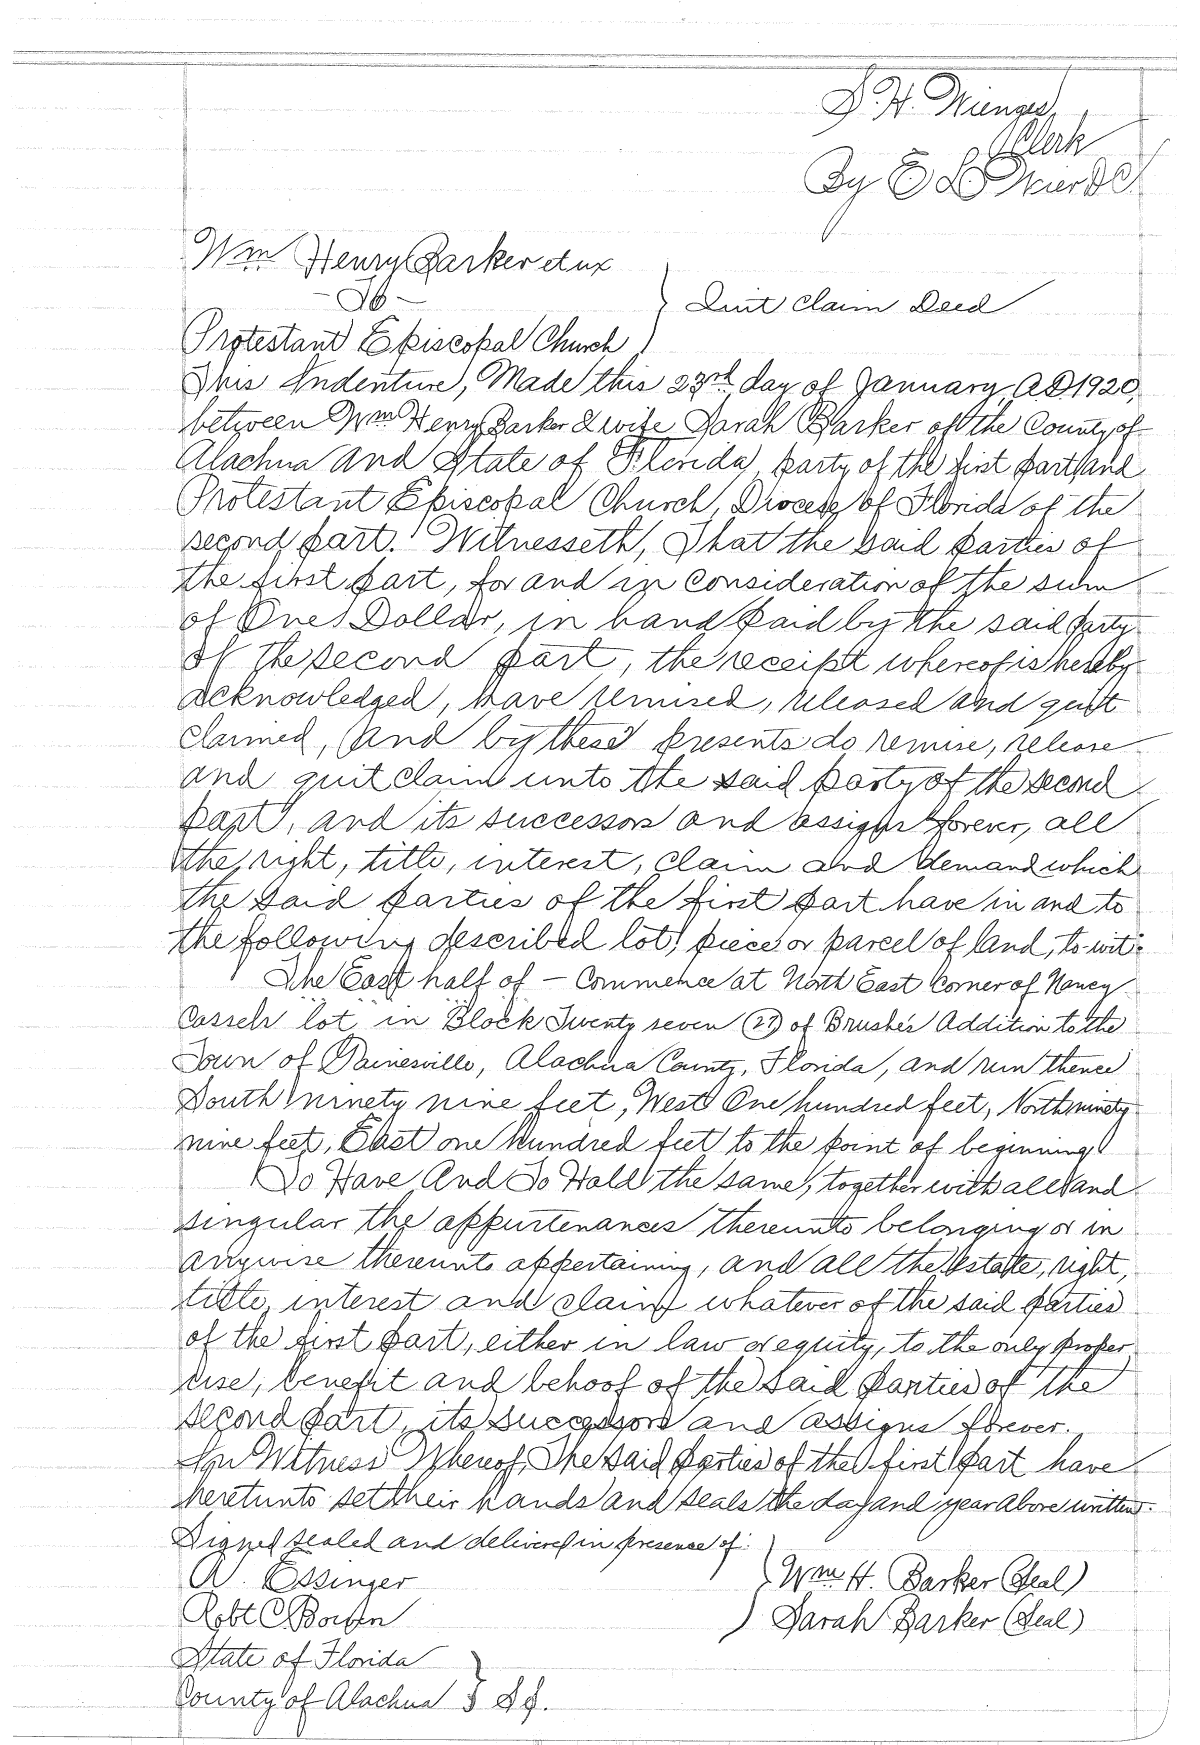 S. H. Wienges,
Clerk
By E L Wier D C
Wm Henry Barker et ux
- To -
Quit Claim Deed
Protestant Episcopal Church
This Indenture, Made this 23rd day of January, A.D. 1920,
between Wm Henry Barker & wife Sarah Barker of the County of
Alachua and State of Florida, party of the first part, and
Protestant Episcopal Church, Diocese of Florida of the
second part. Witnesseth, That the said parties of
the first part, for and in consideration of the sum
of One Dollar, in hand paid by the said party
of the second part, the receipt whereof is hereby
acknowledged, have remised, released and quit
claimed, and by these presents do remise, release
and quit claim unto the said party of the second
part, and its successors and assigns forever, all
the right, title, interest, claim and demand which
the said parties of the first part have in and to
the following described lot, piece or parcel of land, to-wit:
The East half of - Commence at North East Corner of Nancy
Cassels lot in Block Twenty seven (27) of Brushes Addition to the
Town of Gainesville, Alachua County, Florida, and run thence
South ninety nine feet, West One hundred feet, North ninety
nine feet, East one hundred feet to the point of beginning
To Have And To Hold the same, together with all and
singular the appurtenances thereunto belonging or in
anywise thereunto appertaining, and all the estate, right,
title, interest and claim whatever of the said parties
of the first part, either in law or equity, to the only proper
use, benefit and behoof of the said parties of the
second part, its successors and assigns forever.
In Witness Whereof, The said parties of the first part have
heretunto set their hands and seals the day and year above written.
Signed sealed and delivered in presence of:
A. Essinger
Wm H. Barker (Seal)
Robt C Bowen
Sarah Barker (Seal)
State of Florida
County of Alachua } SS.